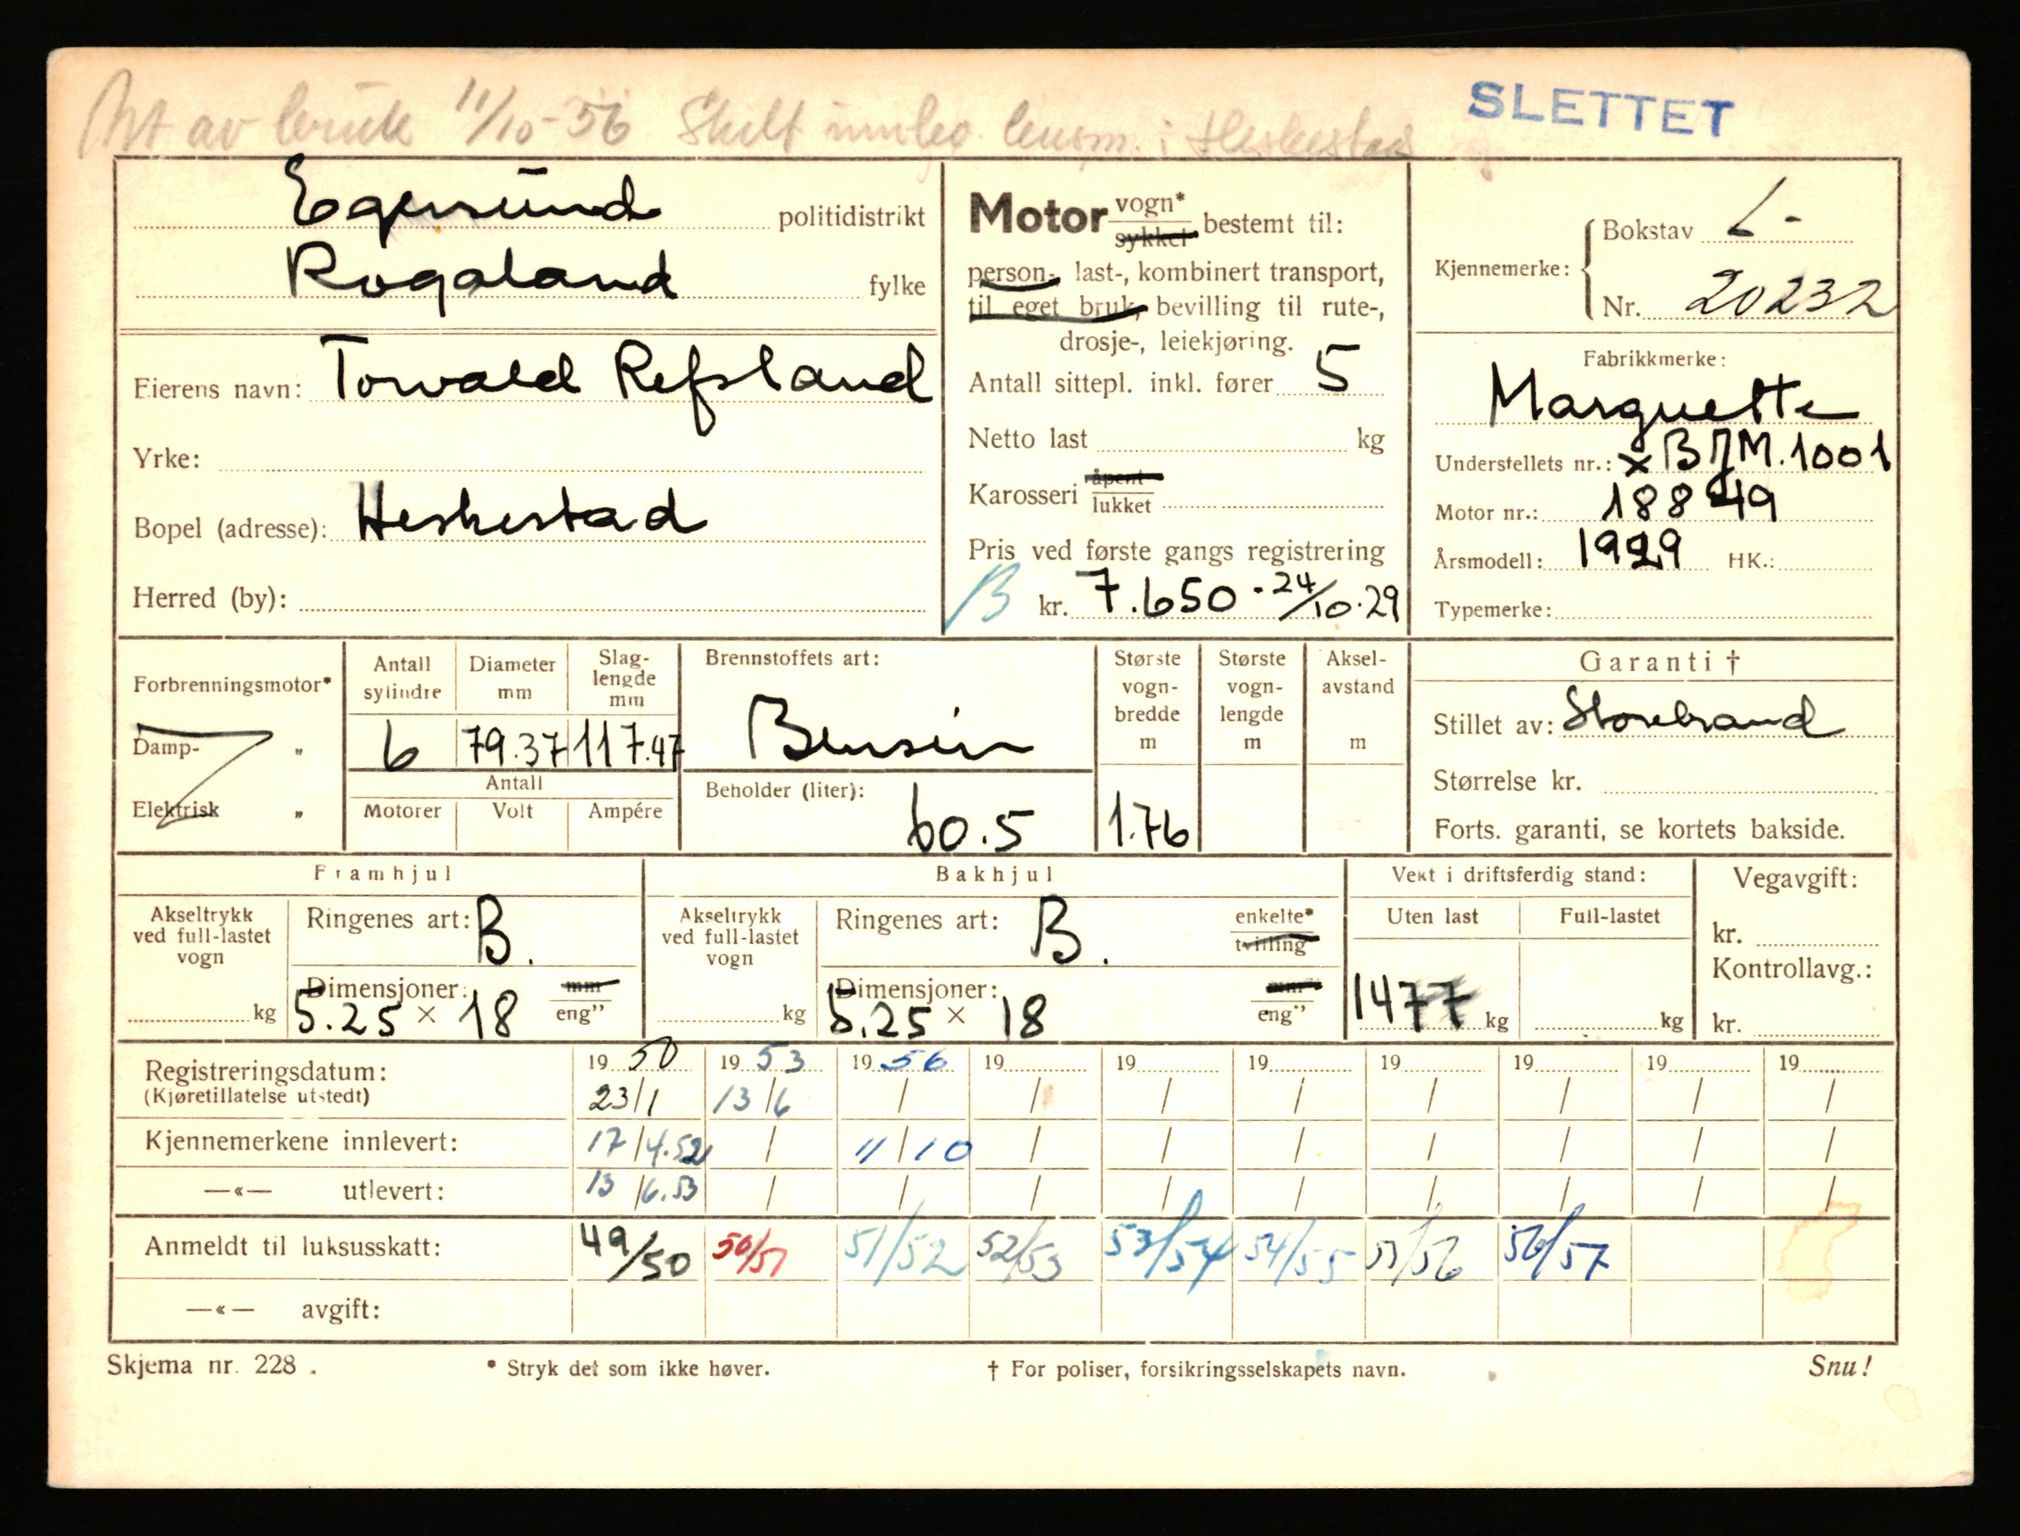 Ut av bruk 11/10-56 Skilt innlev. lensm. i Heskestad
SLETTET
Egersund politidistrikt
Rogaland fylke
Eierens navn: Torvald Refsland
Yrke:
Bopel (adresse): Heskestad
Herred (by):
Motor vogn* sykkel bestemt til:
person-, last-, kombinert transport,
til eget bruk, bevilling til rute-,
drosje-, leiekjøring.
Antall sittepl. inkl. fører 5
Netto last kg
Karosseri åpent lukket
Pris ved første gangs registrering
B kr. 7.650.- 24/10.29
Kjennemerke: Bokstav L-
Nr. 20232
Fabrikkmerke:
Marquette
Understellets nr.: x BJM.1001
Motor nr.: 18849
Årsmodell: 1929 HK.:
Typemerke:
Forbrenningsmotor*
Damp- „
Elektrisk „
Antall sylindre
Diameter mm
Slag-lengde mm
6 79.37 117.47
Antall
Motorer Volt Ampére
Brennstoffets art:
Bensin
Beholder (liter):
60.5
Største vogn-bredde m
1.76
Største vogn-lengde m
Aksel-avstand m
Garanti †
Stillet av: Storebrand
Størrelse kr.
Forts. garanti, se kortets bakside.
Framhjul
Akseltrykk ved full-lastet vogn kg
Ringenes art: B.
Dimensjoner: mm eng"
5.25 × 18
Bakhjul
Akseltrykk ved full-lastet vogn kg
Ringenes art: B. enkelte* tvilling
Dimensjoner: mm* eng"
5.25 × 18
Vekt i driftsferdig stand:
Uten last Full-lastet
1477 kg kg
Vegavgift:
kr.
Kontrollavg.:
kr.
Registreringsdatum: 19 50 19 53 19 56 19 19 19 19 19 19 19
(Kjøretillatelse utstedt) 23/1 13/6 / / / / / / / /
Kjennemerkene innlevert: 17/4.52 / 11/10 / / / / / / /
—«— utlevert: 13/6.53 / / / / / / / / /
Anmeldt til luksusskatt: 49/50 50/51 51/52 52/53 53/54 54/55 55/56 56/57
—«— avgift:
Skjema nr. 228 . * Stryk det som ikke høver. † For poliser, forsikringsselskapets navn. Snu!